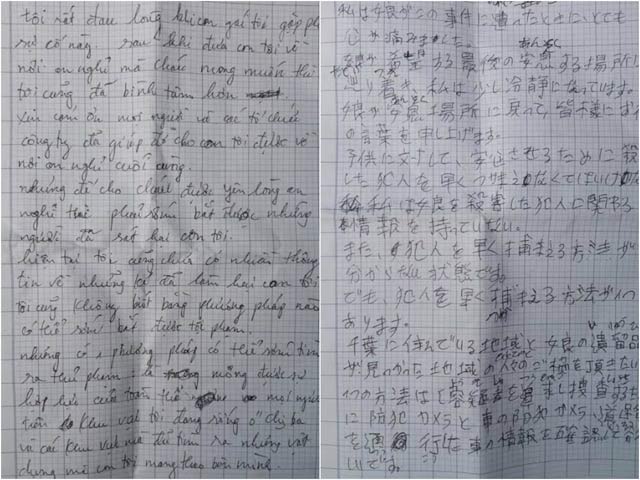 tôi rất đau lòng khi con gái tôi gặp phải
sự cố này. sau khi đưa con tôi về
nơi an nghỉ mà cháu mong muốn thì
tôi cũng đã bình tâm hơn
xin cảm ơn mọi người và các tổ chức
công ty đã giúp đỡ cho con tôi được về
nơi an nghỉ cuối cùng.
nhưng để cho cháu được yên lòng an
nghỉ thì phải sớm bắt được những
người đã sát hại con tôi.
hiện tại tôi cũng chưa có nhiều thông
tin về những kẻ đã làm hại con tôi
tôi cũng không biết bằng phương pháp nào
có thể sớm bắt được tội phạm!
nhưng có 1 phương pháp có thể sớm tìm
ra thủ phạm: là mong muốn được sự
hợp tác của toàn thể mọi người
trên khu vực tôi đang sống ở chi ba
và các khu vực mà đã tìm ra những vật
dụng mà con tôi mang theo bên mình.
私は娘がこの事件に遭ったときに、とても
心が痛みました。
娘が希望する最後の安息する場所に
辿り着き、私は少し冷静になっています。
娘が安息場所に戻って、皆様にお
の言葉を申し上げます。
子供に対して、安心させるために殺
した犯人を早くつかまえなくてはいけな
私は娘を殺害した犯人に関わる
情報を持っていない。
また、犯人を早く捕まえる方法が
分からない状態です。
でも、犯人を早く捕まえる方法が1つ
あります。
千葉に住んでいる地域と娘の遺留品
が見つかった地域の人々のご協力を頂きたい
1つの方法は容疑者を捜査するた
に防犯カメラと車の防犯カメラ
を通行した車の情報を確認して
いです。